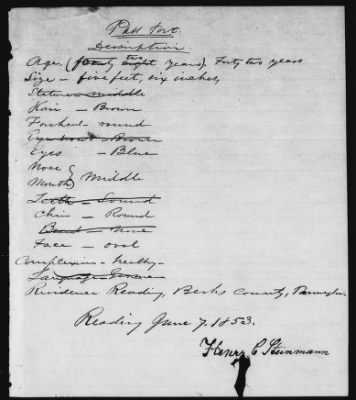 Pass Port.
Description.
Age. (forty two eight years). Forty two years
Size – five feet, six inches,
Stature – middle
Hair – Brown
Forehead – round
Eyebrows – Brown
Eyes – Blue
Nose
Mouth } Middle
Teeth – Sound
Chin – Round
Beard – None
Face – oval
Complexion – healthy –
Language German
Residence Reading, Berks County, Pennsylva.
Reading June 7. 1853.
Henry C Steinmann